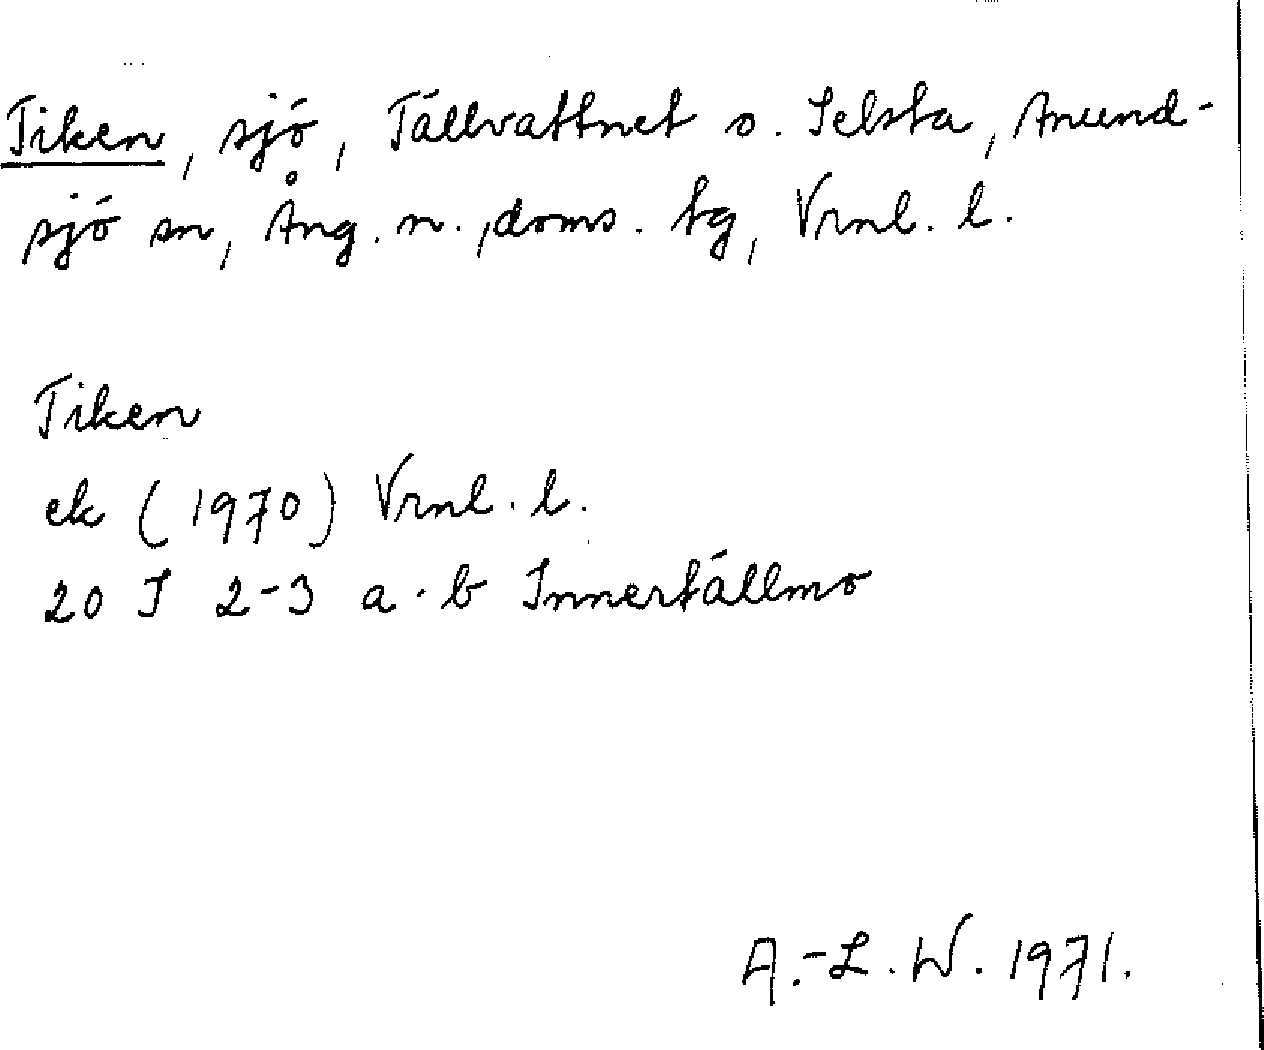 Tiken, sjö, Tällvattnet o. Selsta, Anund-
sjö sn, Ång. n., doms. tg, Vrnl. l.
Tiken
ek (1970) Vrnl. l.
20 I 2-3 a-b Innertällmo
A.-L. W. 1971.